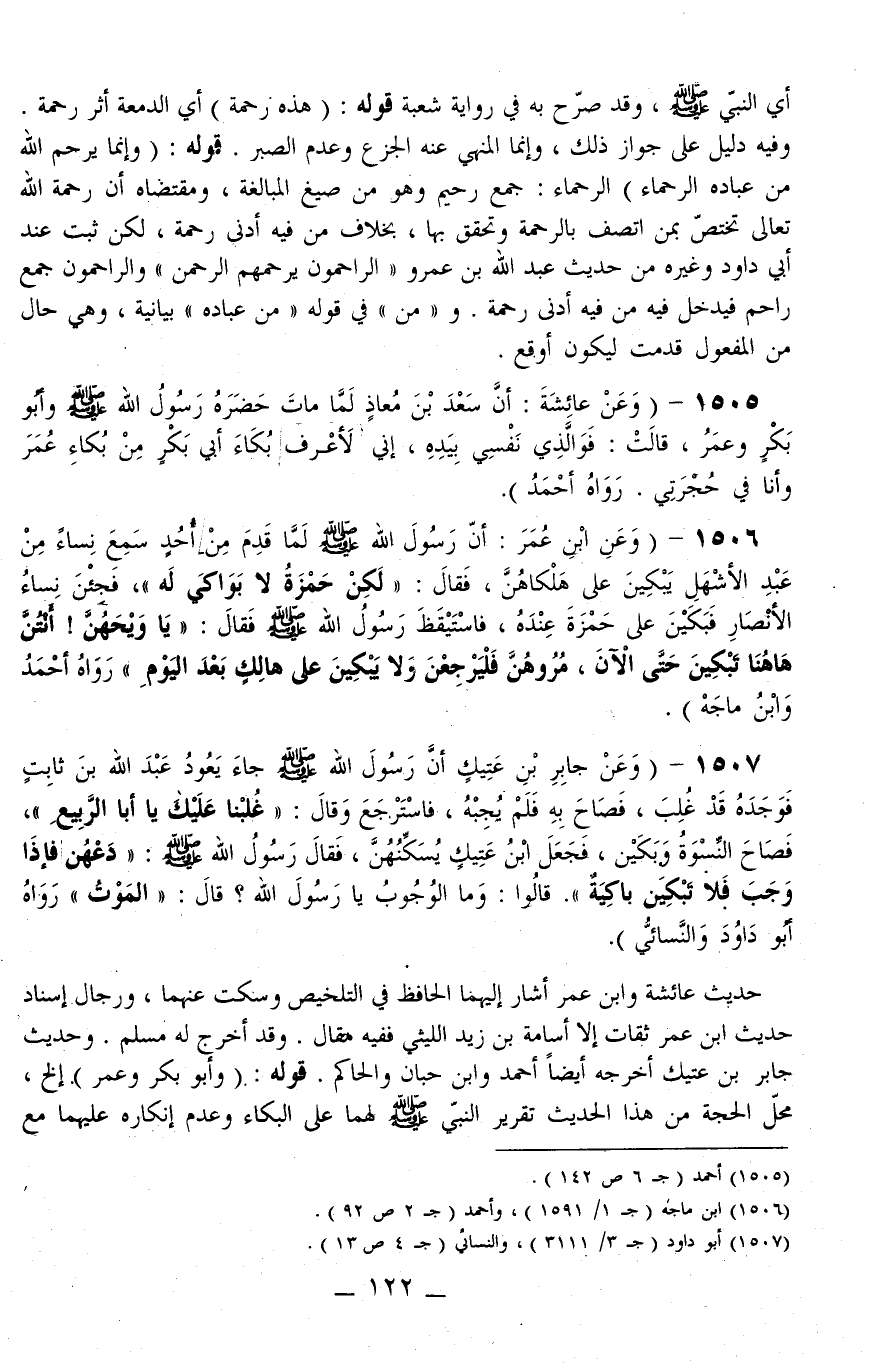 أي النبيّ ﷺ ، وقد صرّح به في رواية شعبة قوله : ( هذه رحمة ) أي الدمعة أثر رحمة .
وفيه دليل على جواز ذلك ، وإنما المنهي عنه الجزع وعدم الصبر . قوله : ( وإنما يرحم الله
من عباده الرحماء ) الرحماء : جمع رحيم وهو من صيغ المبالغة ، ومقتضاه أن رحمة الله
تعالى تختصّ بمن اتصف بالرحمة وتحقق بها ، بخلاف من فيه أدنى رحمة ، لكن ثبت عند
أبي داود وغيره من حديث عبد الله بن عمرو « الراحمون يرحمهم الرحمن » والراحمون جمع
راحم فيدخل فيه من فيه أدنى رحمة . و « من » في قوله « من عباده » بيانية ، وهي حال
من المفعول قدمت ليكون أوقع .
١٥٠٥ – ( وَعَنْ عائِشَةَ : أنَّ سَعْدَ بْنَ مُعاذٍ لَمَّا ماتَ حَضَرَهُ رَسُولُ الله ﷺ وأبُو
بَكْرٍ وعمَرُ ، قالَتْ : فَوَالَّذِي نَفْسِي بِيَدِهِ ، إني لَأعْـرف بُكَاءَ أبي بَكْرٍ مِنْ بُكاءِ عُمَرَ
وأنا في حُجْرَتِي . رَوَاهُ أحْمَدُ ).
١٥٠٦ – ( وَعَنِ ابْنِ عُمَرَ : أنّ رَسُولَ الله ﷺ لَمَّا قَدِمَ مِنْ أُحُدٍ سَمِعَ نِساءً مِنْ
عَبْدِ الأشْهَلِ يَبْكِينَ على هَلْكاهُنَّ ، فَقالَ : « لَكِنْ حَمْزَةُ لا بَوَاكي لَه »، فَجِئْنَ نِساءُ
الأنْصَارِ فَبَكَيْنَ على حَمْزَةَ عِنْدَهُ ، فاسْتَيْقَظَ رَسُولُ الله ﷺ فَقالَ : « يَا وَيْحَهُنَّ ! أَنْتُنَّ
هَاهُنَا تَبْكِينَ حَتَّى الْآنَ ، مُرُوهُنَّ فَلْيَرْجِعْنَ وَلا يَبْكِينَ على هالِكٍ بَعْدَ اليَوْمِ » رَوَاهُ أحْمَدُ
وَابْنُ ماجَهْ ) .
١٥٠٧ – ( وَعَنْ جابِرِ بْنِ عَتِيكٍ أنَّ رَسُولَ الله ﷺ جاءَ يَعُودُ عَبْدَ الله بنَ ثابِتٍ
فَوَجَدَهُ قَدْ غُلِبَ ، فَصَاحَ بِهِ فَلَمْ يُجِبْهُ ، فاسْتَرْجَعَ وَقالَ : « غُلِبْنا عَلَيْكَ يا أبا الرَّبِيعِ »،
فَصَاحَ النِّسْوَةُ وَبَكَيْن ، فَجَعَلَ ابْنُ عَتِيكٍ يُسَكِّتُهُنَّ ، فَقالَ رَسُولُ الله ﷺ : « دَعْهُن فإذَا
وَجَبَ فَلا تَبْكِين باكِيَةٌ ». قالُوا : وَما الوُجُوبُ يا رَسُولَ الله ؟ قالَ : « المَوْتُ » رَوَاهُ
أبُو دَاوُدَ وَالنَّسائيُّ ).
حديث عائشة وابن عمر أشار إليهما الحافظ في التلخيص وسكت عنهما ، ورجال إسناد
حديث ابن عمر ثقات إلا أسامة بن زيد الليثي ففيه مقال . وقد أخرج له مسلم . وحديث
جابر بن عتيك أخرجه أيضاً أحمد وابن حبان والحاكم . قوله : ( وأبو بكر وعمر ) إلخ ،
محلّ الحجة من هذا الحديث تقرير النبيّ ﷺ لهما على البكاء وعدم إنكاره عليهما مع
(١٥٠٥) أحمد ( جـ ٦ ص ١٤٢ ) .
(١٥٠٦) ابن ماجه ( جـ ١/ ١٥٩١ ) ، وأحمد ( جـ ٢ ص ٩٢ ) .
(١٥٠٧) أبو داود ( جـ ٣/ ٣١١١ ) ، والنسائي ( جـ ٤ ص ١٣ ) .
– ١٢٢ –